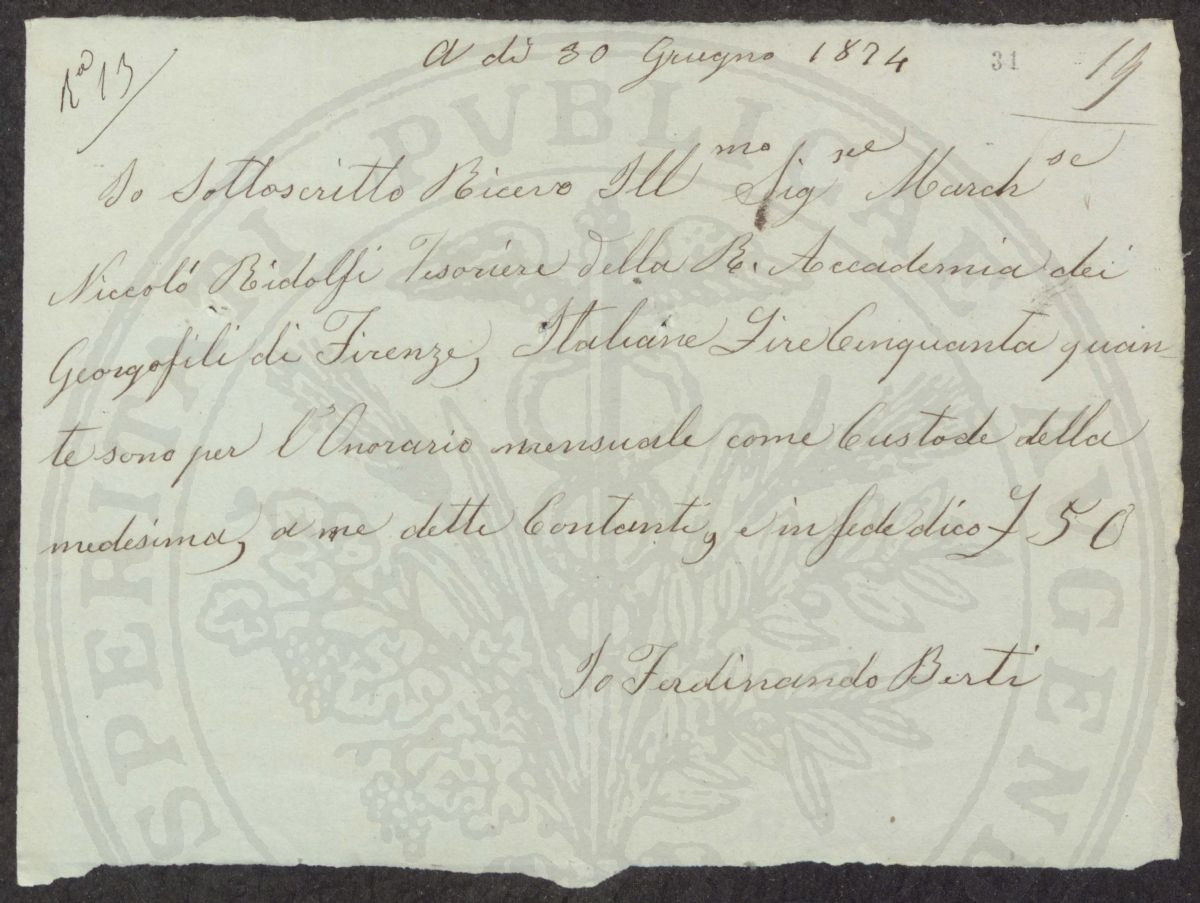 Nº 13
A dì 30 Giugno 1874
31
19
Io Sottoscritto Ricevo Ill mo Sig re March se
Niccoló Ridolfi Tesoriere della R. Accademia dei
Georgofili di Firenze, Italiane Lire Cinquanta quan-
te sono per l'Onorario mensuale come Custode della
medesima, a me dette Contanti, e in fede dico £ 50
Io Ferdinando Berti
PROSPERITATI PVBLICAE AVGENDAE